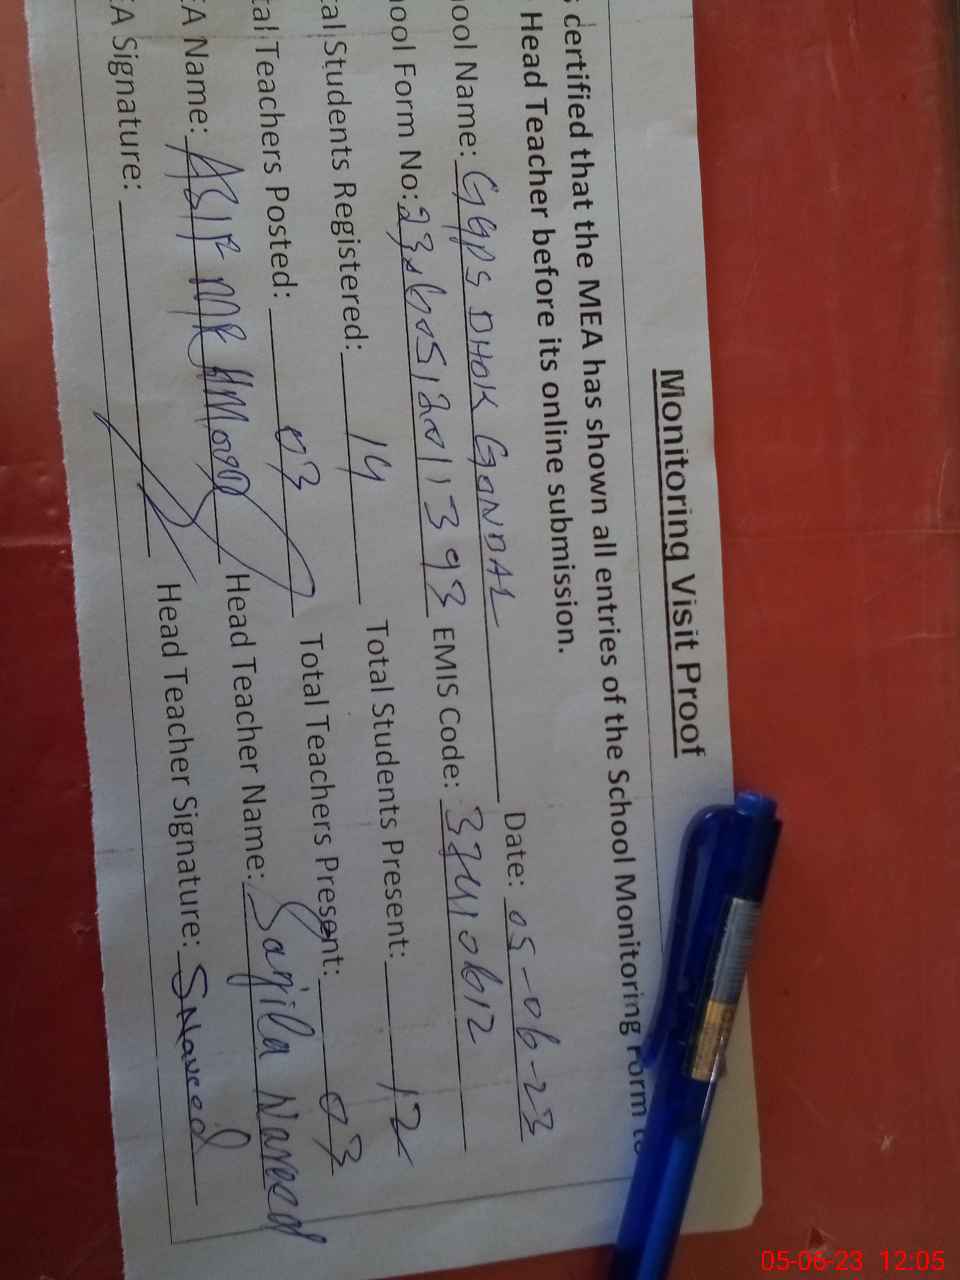 Monitoring Visit Proof
certified that the MEA has shown all entries of the School Monitoring Form to
Head Teacher before its online submission.
ool Name: GGPS DHOK GONDAL Date: 05-06-23
ool Form No: EMIS Code: 37410612
al Students Registered: 14 Total Students Present: 12
tal Teachers Posted: 03 Total Teachers Present: 03
EA Name: ASIF Head Teacher Name: Sajila Naveed
EA Signature: Head Teacher Signature: SNaveed
05-06-23 12:05